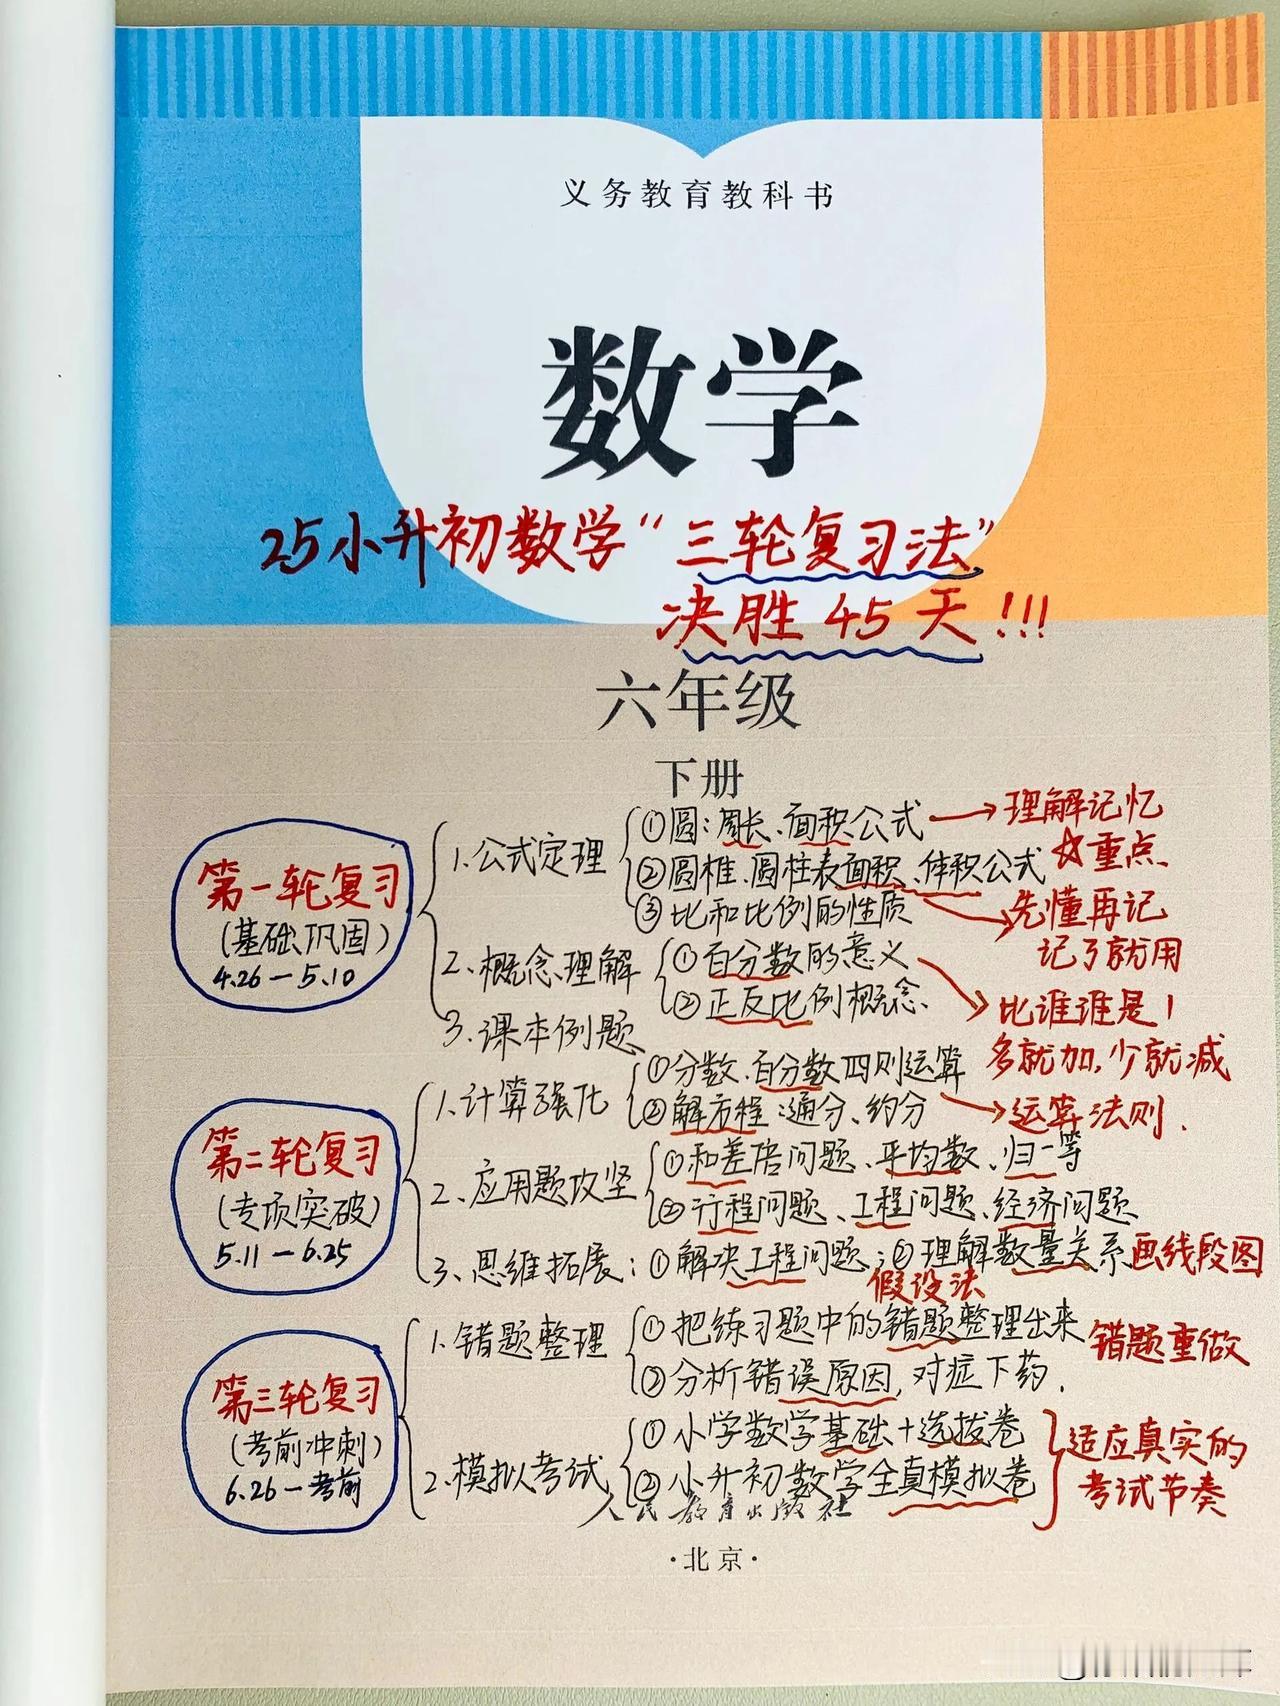 义务教育教科书
数学
25小升初数学“三轮复习法”
决胜45天!!!
六年级
下册
第一轮复习
(基础巩固)
4.26—5.10
1.公式定理
①圆:周长、面积公式→理解记忆
②圆椎、圆柱表面积、体积公式 ☆重点
③比和比例的性质
先懂再记
记了就用
2.概念理解
①百分数的意义
②正反比例概念
比谁谁是1
多就加,少就减
3.课本例题
第二轮复习
(专项突破)
5.11—6.25
1.计算强化
①分数、百分数四则运算
②解方程:通分、约分→运算法则.
2.应用题攻坚
①和差倍问题、平均数、归一等
②行程问题、工程问题、经济问题
3.思维拓展:①解决工程问题;②理解数量关系画线段图
假设法
第三轮复习
(考前冲刺)
6.26—考前
1.错题整理
①把练习题中的错题整理出来
②分析错误原因,对症下药.
错题重做
2.模拟考试
①小学数学基础+选拔卷
②小升初数学全真模拟卷
适应真实的
考试节奏
人民教育出版社
·北京·